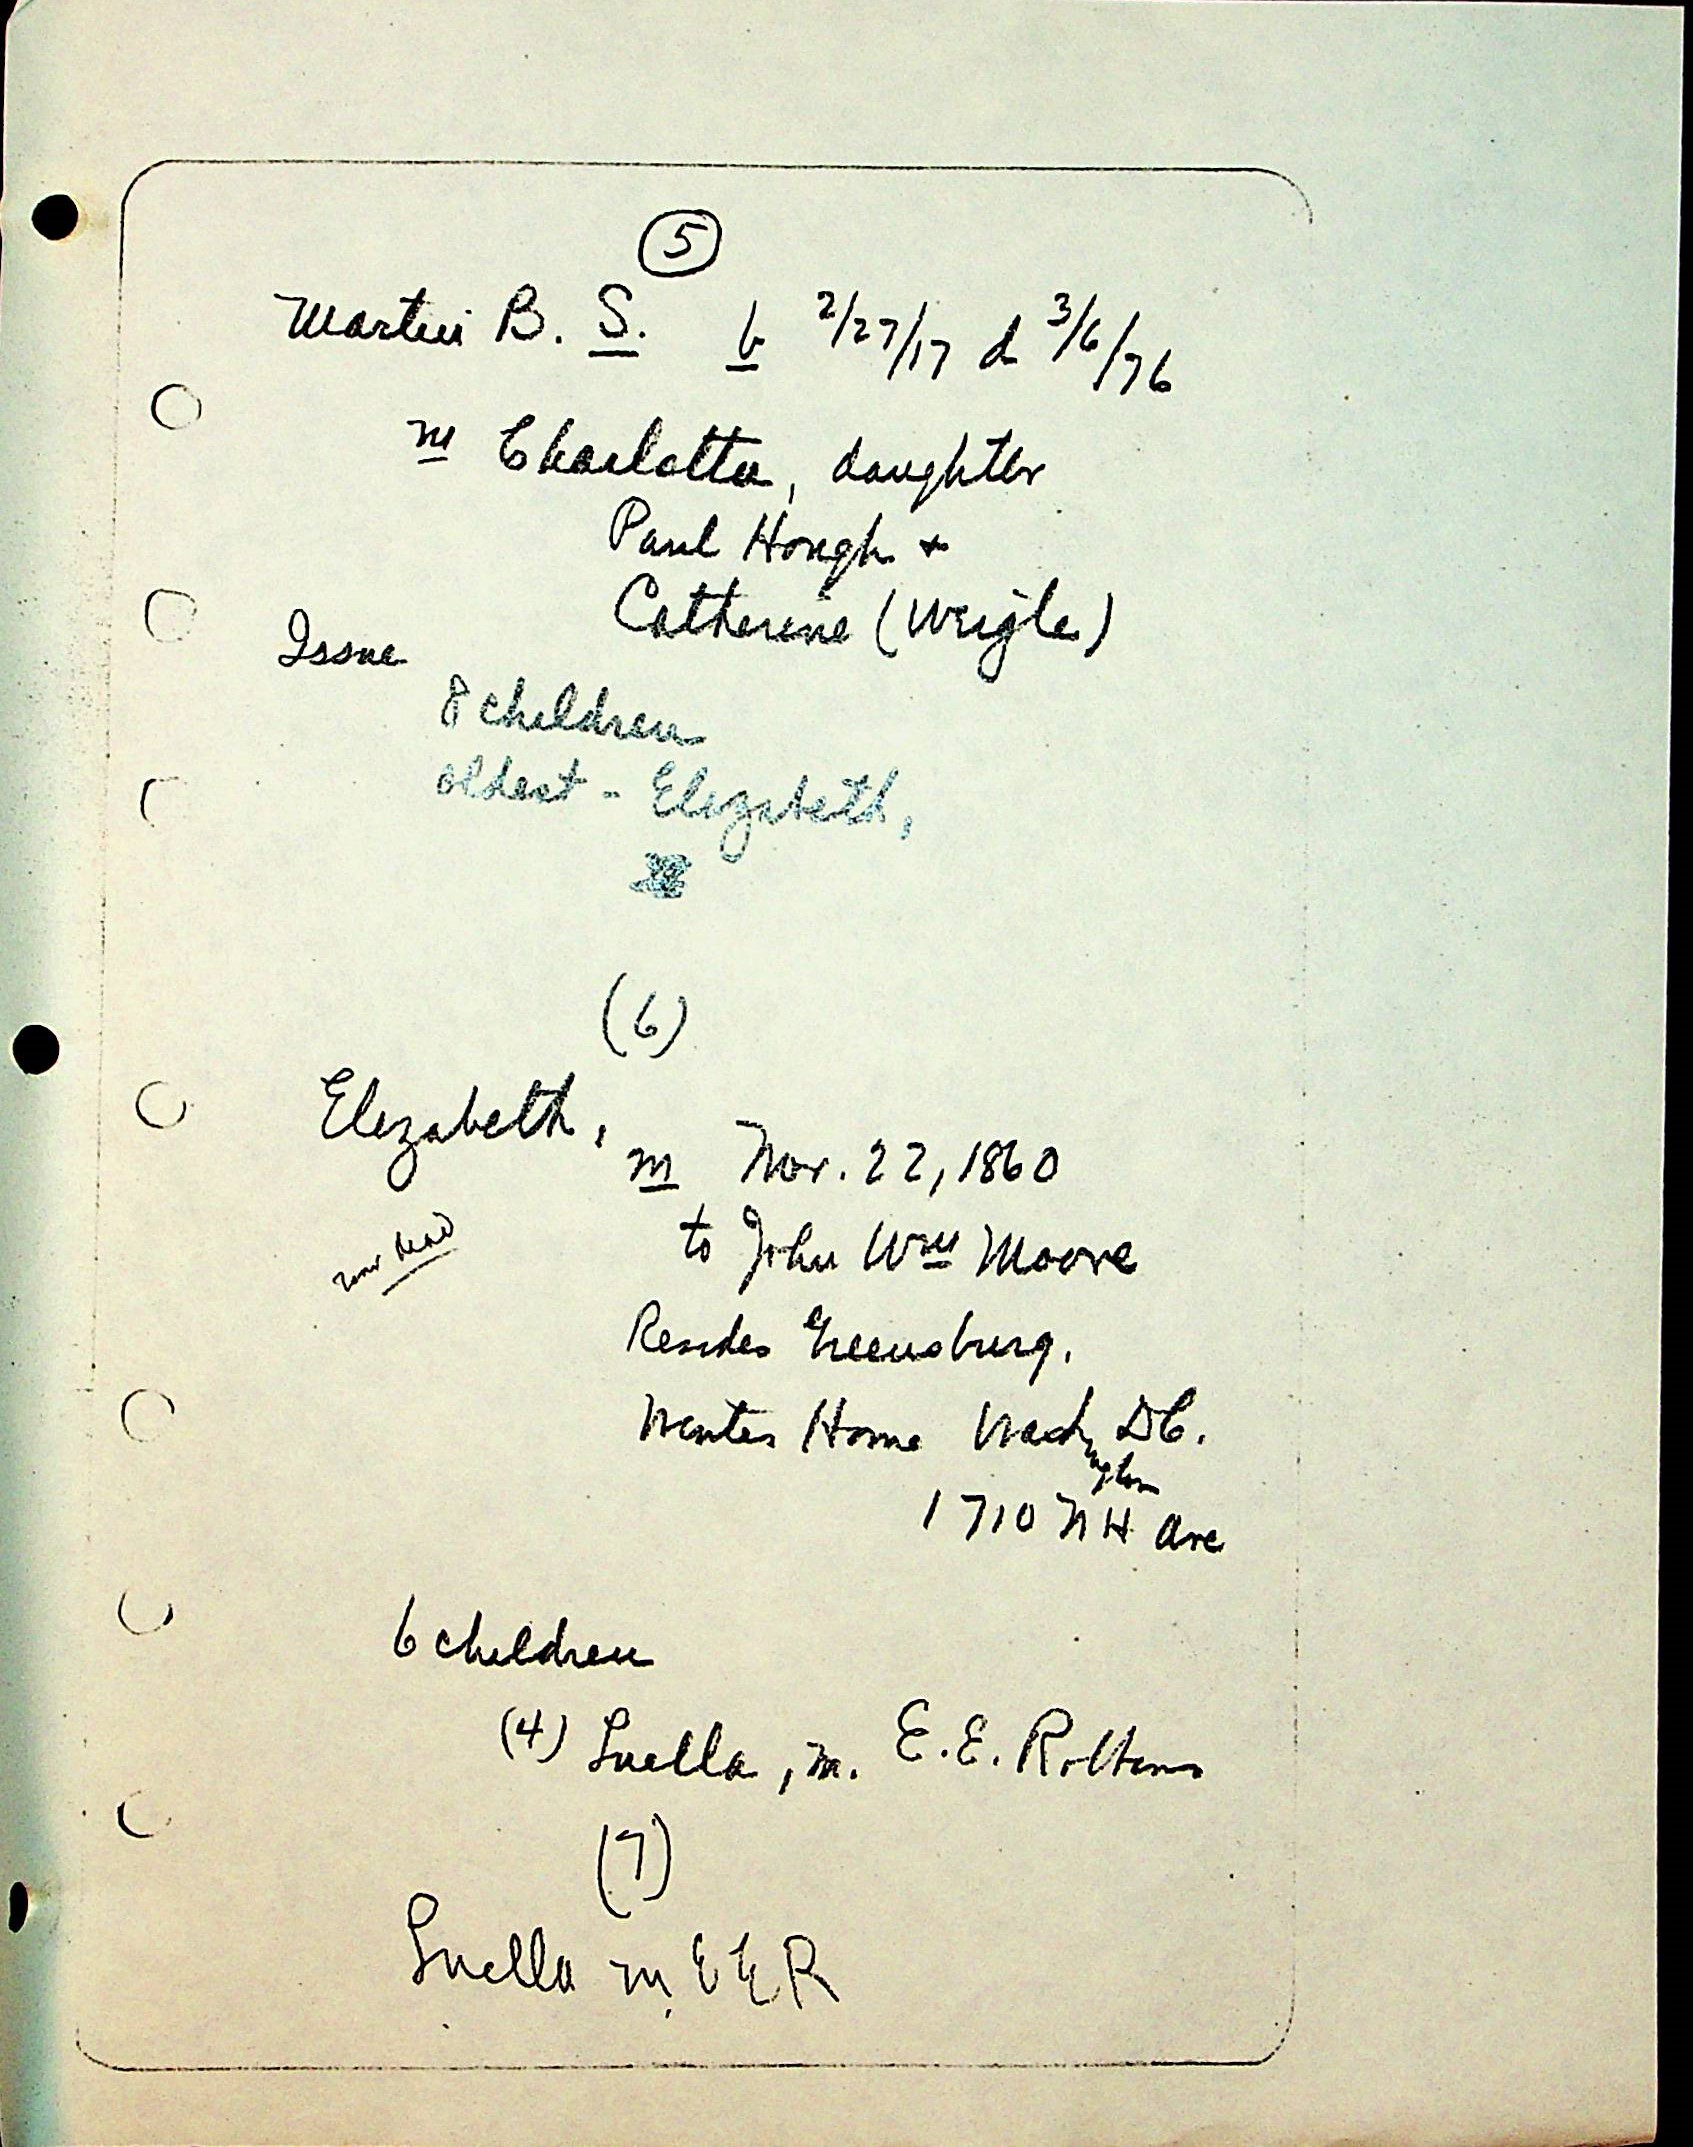 5
Martin B. S. b 2/27/17 d 3/6/76
m Charlotta, daughter
Paul Hough +
Catherine (Weigle)
Issue
8 children
oldest - Elizabeth,
(6)
Elizabeth,
m Nov. 22, 1860
now dead
to John Wm Moore
Resides Greensburg.
Winter Home Washington DC.
1710 NH Ave
6 children
(4) Luella, m. E.E.
(7)
Luella m. E E R